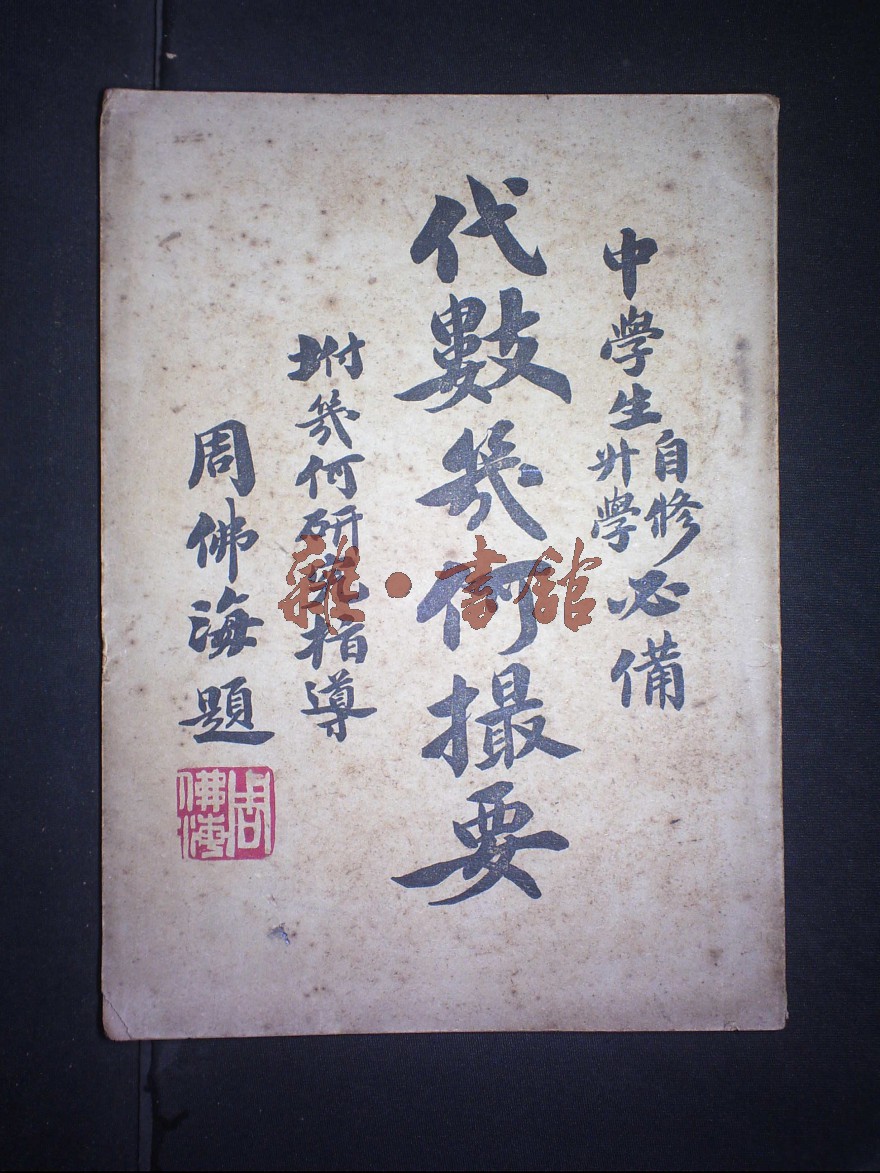 中學生自修升學必備
代數幾何撮要
坿幾何研究指導
周佛海題
周佛海
雜·書館